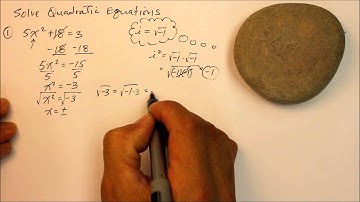 Solve Quadratic Equations
① 5x² + 18 = 3
-18 -18
5x² = -15
5 5
x² = -3
√x² = √-3
x = ±
i = √-1
i² = √-1 · √-1
√(-1)(-1) = -1
√-3 = √-1·3 =